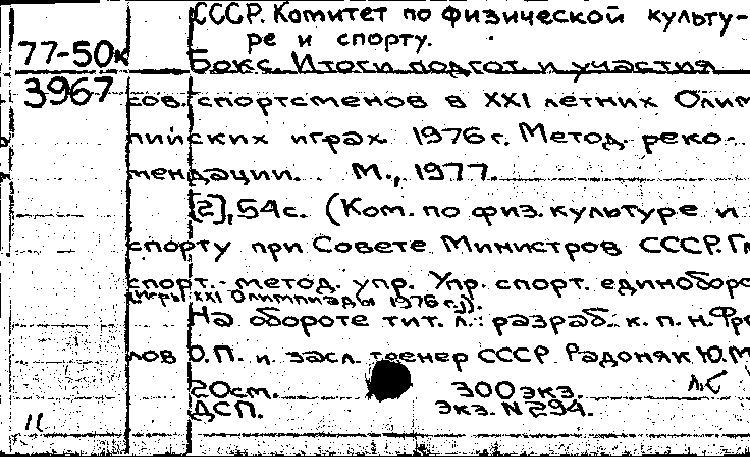 СССР. Комитет по физической культу-
ре и спорту.
77-50к Бокс. Итоги подгот. и участия
3967 сов. спортсменов в XXI летних Олим
пийских играх 1976 г. Метод. реко-
мендации. М., 1977.
[2], 54 с. (Ком. по физ. культуре и
спорту при Совете Министров СССР. Гл
спорт.-метод. упр. Упр. спорт. единобор
(Игры XXI Олимпиады 1976 г.)).
На обороте тит. л.: разраб. к. п. н.
лов О.П. и засл. тренер СССР Радоняк Ю.М
20см. 300 экз.
ДСП. Экз. N 294.